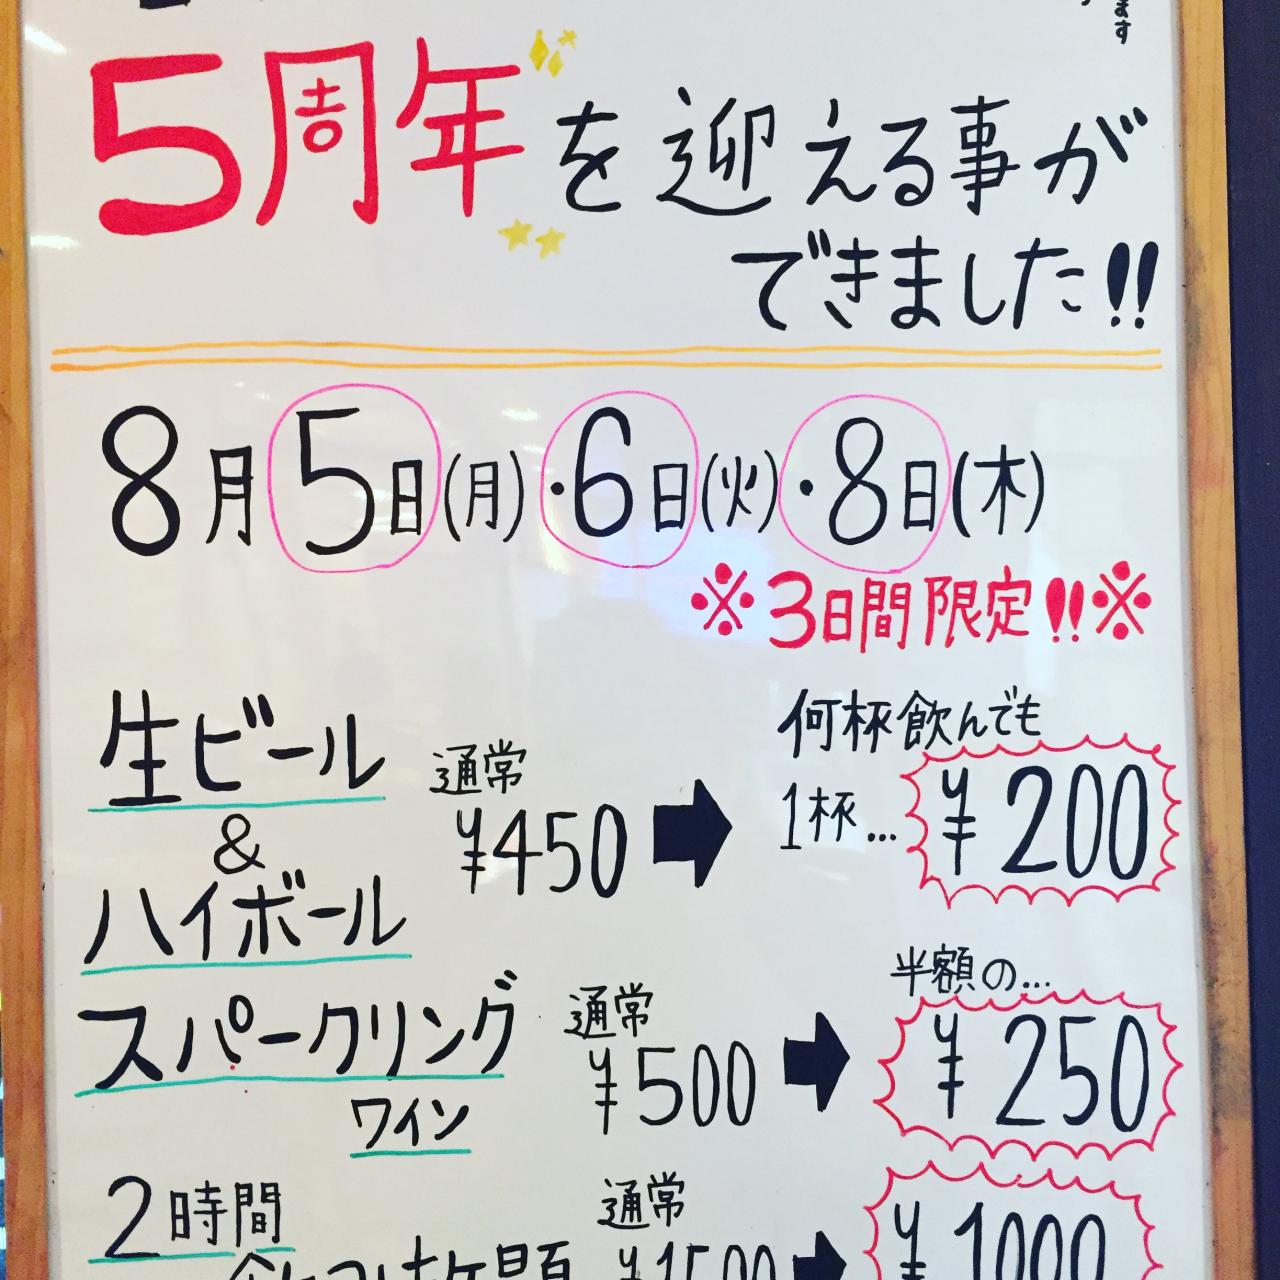 ます
5周年を迎える事が
できました!!
8月5日(月)・6日(火)・8日(木)
※3日間限定!!※
生ビール
&
ハイボール
通常
¥450
何杯飲んでも
1杯… ¥200
スパークリング
ワイン
通常
¥500
半額の…
¥250
2時間
飲み放題
通常
¥1500
¥1000